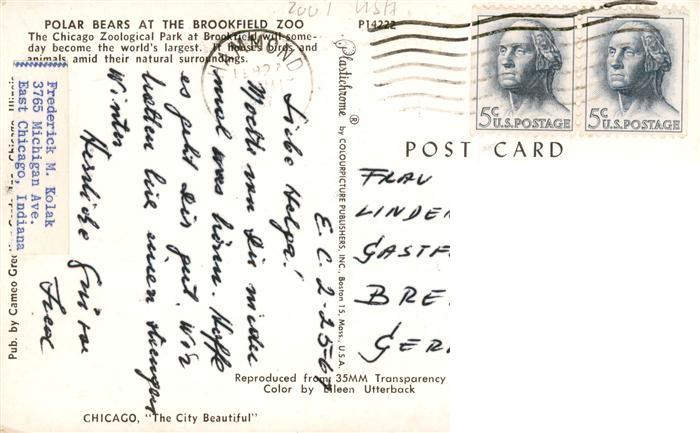 2001 USA
POLAR BEARS AT THE BROOKFIELD ZOO
The Chicago Zoological Park at Brookfield will some-
day become the world's largest. It houses birds and
animals amid their natural surroundings.
P14222
HAMMOND
IND
5¢ U.S.POSTAGE
5¢ U.S.POSTAGE
POST CARD
Frederick M. Kolak
3765 Michigan Ave.
East Chicago, Indiana
Pub. by Cameo
E. C. 2-25-64
Liebe Helga!
Möchte von Dir wieder
mal was hören. Hoffe
es geht Dir gut. Wir
hatten hier einen strengen
Winter
Herzliche Grüsse
Fred
Plastichrome ® by COLOURPICTURE PUBLISHERS, INC., Boston 15, Mass., U.S.A.
FRAU
LINDE
GASTF
BRE
GER
Reproduced from 35MM Transparency
Color by Eileen Utterback
CHICAGO, "The City Beautiful"